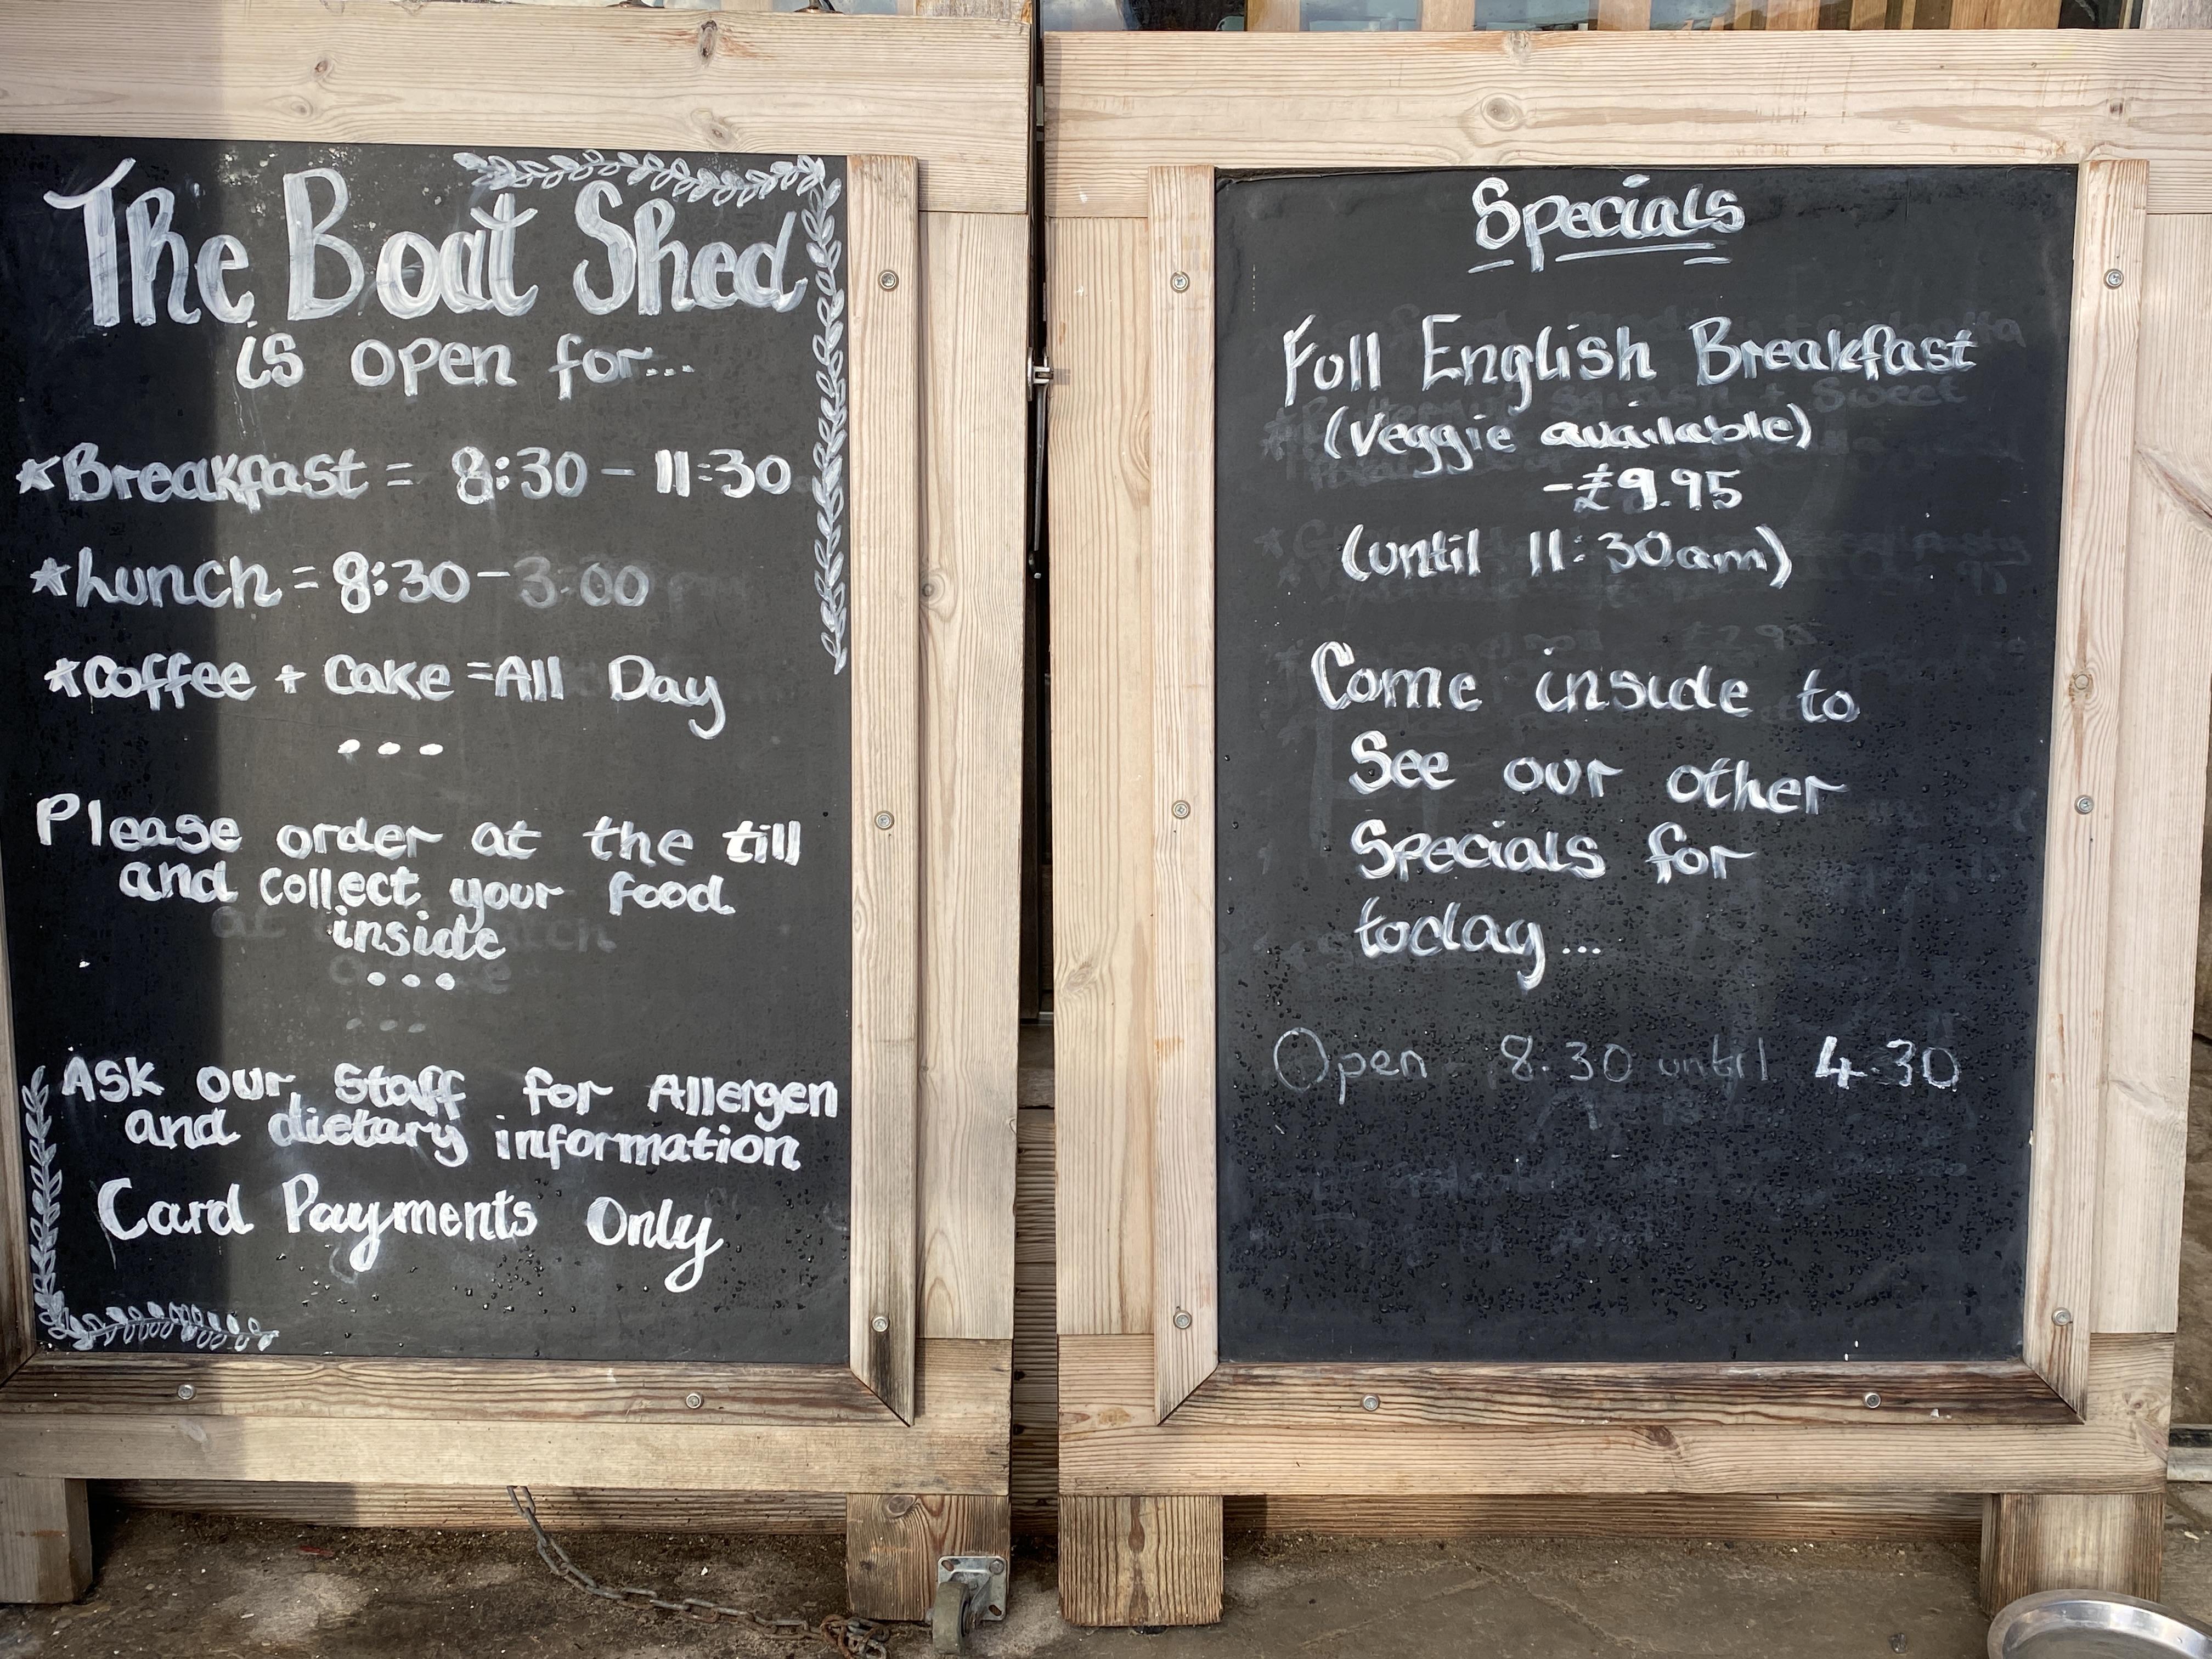 The Boat Shed
is open for...
*Breakfast = 8:30 - 11:30
*Lunch = 8:30 - 3:00
*Coffee + Cake = All Day
...
Please order at the till
and collect your food
inside
...
Ask our Staff for Allergen
and dietary information
Card Payments Only
Specials
Full English Breakfast
(Veggie available)
- £9.95
(until 11:30am)
Come inside to
See our other
Specials for
today...
Open 8.30 until 4.30